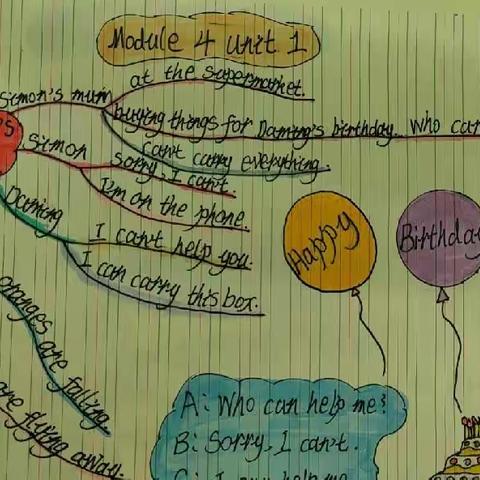 Module 4 unit 1
at the supermarket.
Simon's mum
buying things for Daming's birthday. Who can
can't carry everything.
's
Simon
sorry, I can't.
I'm on the phone.
Daming
I can't help you.
I can carry this box.
Happy
Birthday
oranges are falling.
are flying away.
A: Who can help me?
B: Sorry, I can't.
C: I can help me